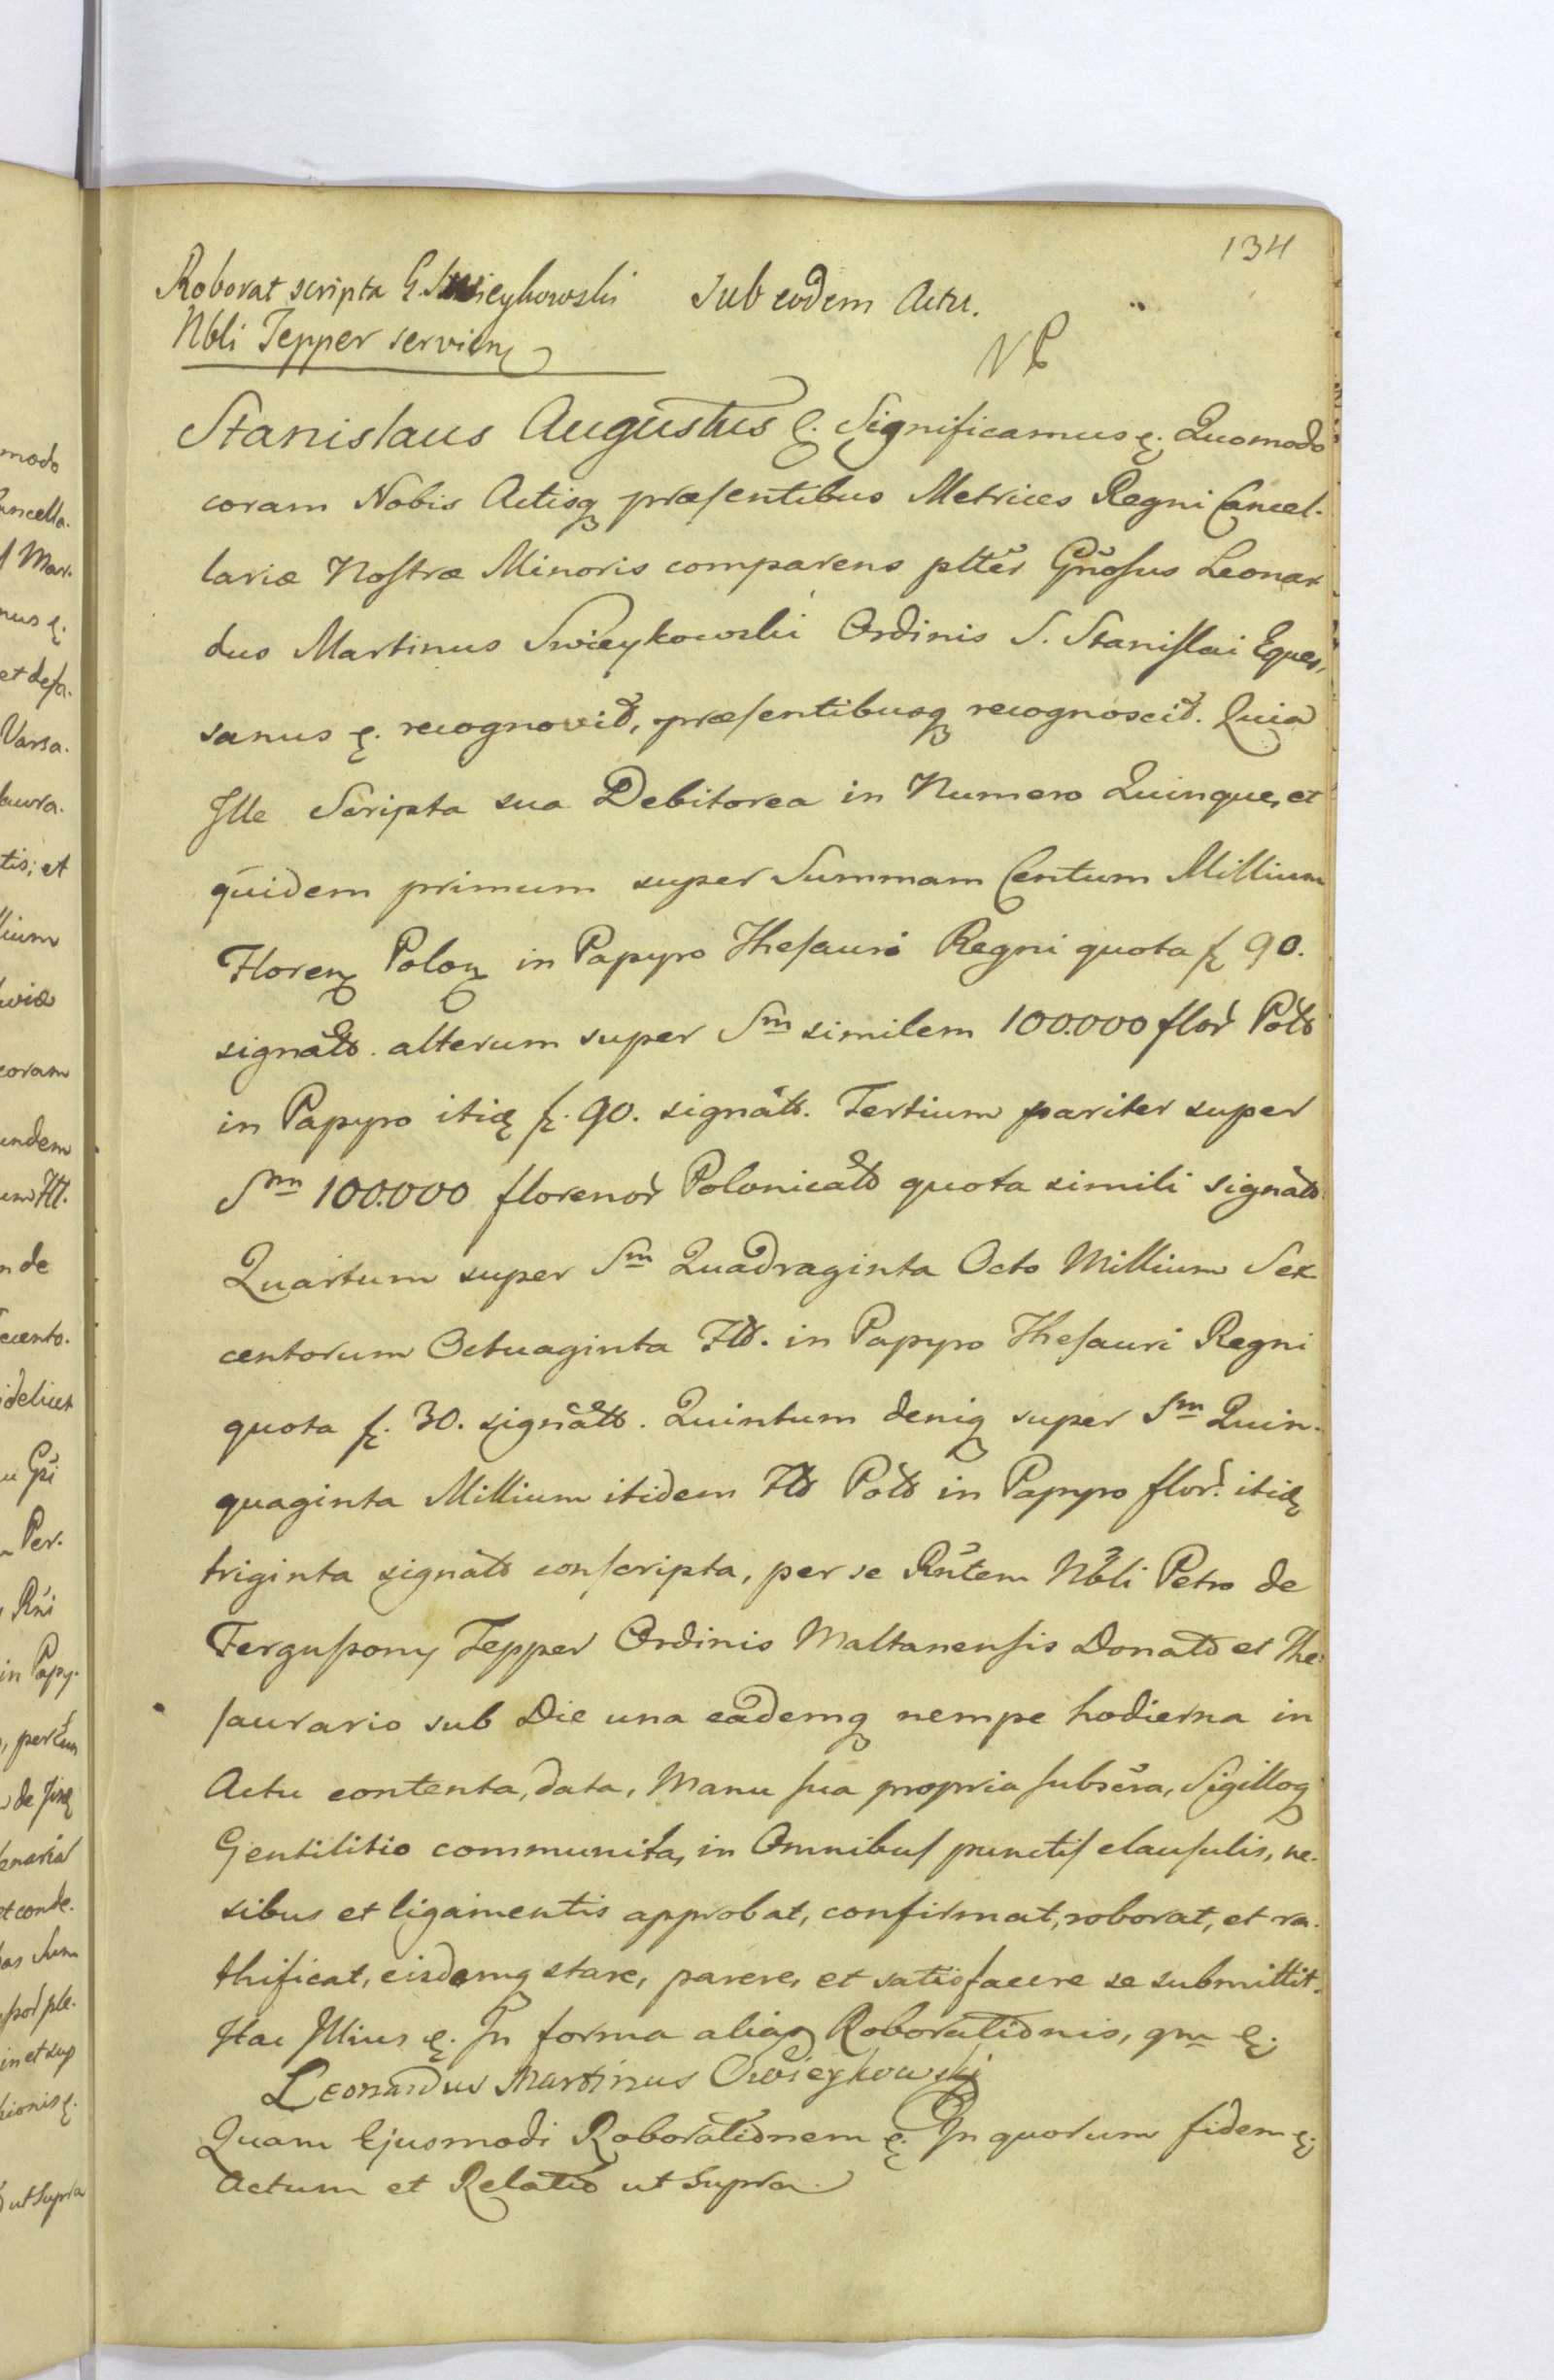 134
Roborat scripta G. Swieykowski Sub eodem Actu.
Nbli Tepper servien
NP
Stanislaus Augustus &. Significamus &. Quomodo
coram Nobis Actisq præsentibus Metrices Regni Cancel-
lariæ Nostræ Minoris comparens pltter Gnosus Leonar
dus Martinus Swieykowski Ordinis S. Stanislai Eques,
sanus &. recognovit, præsentibusq recognoscit. Quia
Ille Scripta sua Debitorea in Numero Quinque, et
quidem primum super Summam Centum Millium
Floren Polon in Papyro Thesauri Regni quota f 90.
signato. alterum super Sm similem 100.000 flor Polo
in Papyro itid f. 90. signato. Tertium pariter super
Sm 100.000 florenor Polonicalo quota simili signato
Quartum super Sm Quadraginta Octo Millium Sex
centorum Octuaginta Flo. in Papyro Thesauri Regni
quota f. 30. signato. Quintum deniq super Sm Quin-
quaginta Millium itidem Flo Polo in Papyro flor. itid
triginta signato conscripta, per se Rntem Nbli Petro de
Fergussony Tepper Ordinis Maltanensis Donato et The-
saurario sub Die una eademq nempe hodierna in
Actu contenta, data, Manu sua propria subscra, Sigilloq
Gentilitio communita, in Omnibus punctis clausulis, ne-
xibus et ligamentis approbat, confirmat, roborat, et ra-
thificat, eisdemq stare, parere, et satisfacere se submittit.
Hac Illius &. In forma aliaq Roborationis, qm &.
Leonardus Martinus Swieykowski
Quam Ejusmodi Roborationem &. In quorum fidem &.
Actum et Relatio ut Supra